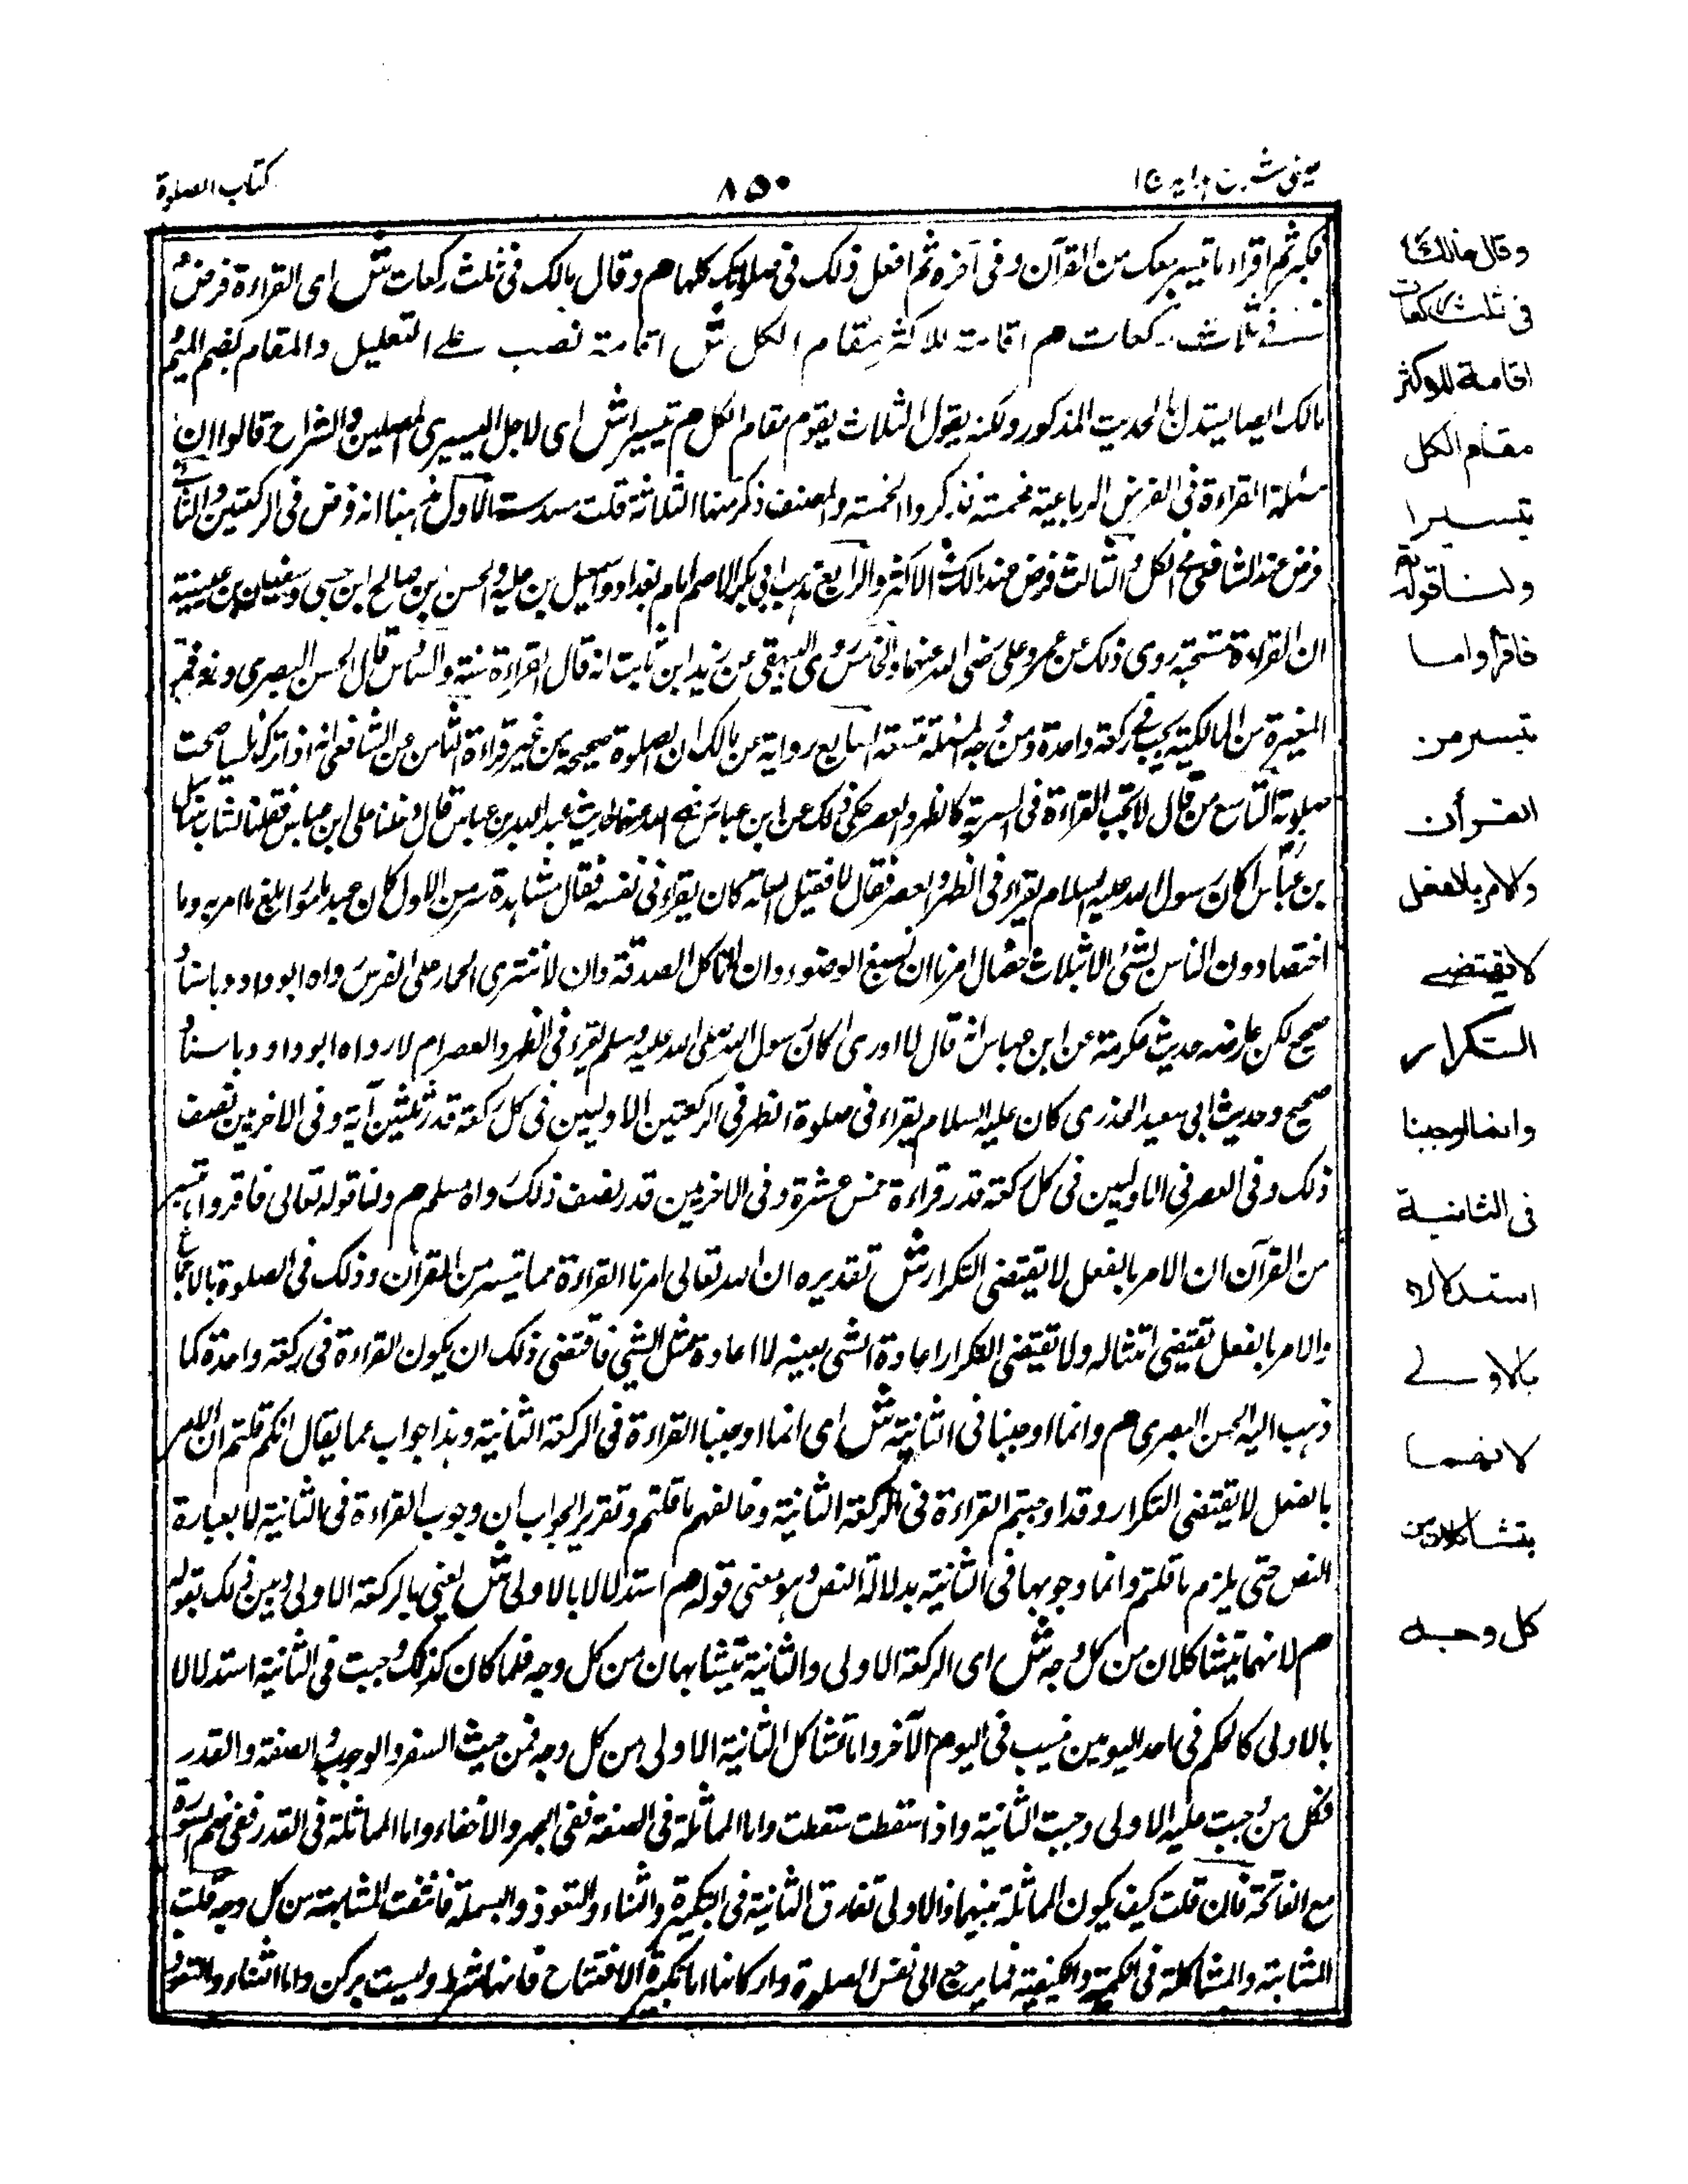 عینی شرح ہدایہ ج ۱
۸۵۰
کتاب الصلوة
فکبر ثم اقراء ما تیسر معک من القرآن وفی آخره ثم افعل ذلک فی صلاتک کلها م وقال مالک فی ثلث رکعات ش ای القراءة فرض
فی ثلاث رکعات م اقامة للاکثر مقام الکل ش اقامة نصب علے التعلیل والمقام بضم المیم
مالک ایضا یستدل بالحدیث المذکور ولکنه یقول الثلاث یقوم مقام الکل م تیسیرا ش ای لاجل الیسیر علی المصلین والشراح قالوا ان
مسئلة القراءة فی الفرض الرباعیة مخمسة فذکروا الخمسة والمصنف ذکر منها الثلاثة قلت مسدسة الاول مذهبنا انه فرض فی الرکعتین والثانی
فرض عند الشافعی فی الکل والثالث فرض عند مالک فی الاکثر والرابع مذهب ابی بکر الاصم امام بغداد واسمعیل بن علیة والحسن بن صالح ابن حیی وسفیان بن عیینة
ان القراءة مستحبة روی ذلک عن عمر وعلی رضی الله عنهما والخامس روی البیهقی عن زید ابن ثابت انه قال القراءة سنة والسادس قال الحسن البصری وزفر
المغیرة من المالکیة یجب فی رکعة واحدة ومن وجه المسئلة متسعة السابع روایة عن مالک ان الصلوة صحیحة من غیر قراءة الثامن عن الشافعی انه اذا ترکها ناسیا صحت
صلوته التاسع من قال لا تجب القراءة فی السریة کالظهر والعصر حکی ذلک عن ابن عباس رضی الله عنهما لحدیث عبد الله بن عباس قال دخلنا علی ابن عباس فقلنا لشاب سل
بن عباس اکان رسول الله علیه السلام یقراء فی الظهر والعصر فقال لا فقیل لعله کان یقراء فی نفسه فقال مشاهدة شر من الاول کان عبدا مامورا بلغ ما امر به وما
اختصنا دون الناس بشئ الا بثلاث خصال امرنا ان نسبغ الوضوء وان لا ناکل الصدقة وان لا ننتزی الحمار علی الفرس رواه ابو داود باسناد
صحیح لکن عارضه حدیث عکرمة عن ابن عباس انه قال لا ادری اکان رسول الله صلی الله علیه وسلم یقراء فی الظهر والعصر ام لا رواه ابو داود باسناد
صحیح وحدیث ابی سعید الخدری کان علیه السلام یقراء فی صلوة الظهر فی الرکعتین الاولیین فی کل رکعة قدر ثلثین آیة وفی الاخریین نصف
ذلک وفی العصر فی الاولیین فی کل رکعة قدر قراءة خمس عشرة وفی الاخریین قدر نصف ذلک رواه مسلم م ولنا قوله تعالی فاقروا ما تیسر
من القرآن ان الامر بالفعل لا یقتضی التکرار ش تقدیره ان الله تعالی امرنا القراءة مما تیسر من القرآن وذلک فی الصلوة بالاجماع
والامر بالفعل تقتضی امتثاله ولا تقتضی التکرار اعادة الشی بعینه لا اعادة مثل الشی فاقتضی ذلک ان یکون القراءة فی رکعة واحدة کما
ذهب الیه الحسن البصری م وانما اوجبنا فی الثانیة ش ای انما اوجبنا القراءة فی الرکعة الثانیة وهذا جواب عما یقال انکم قلتم ان الامر
بالفعل لا یقتضی التکرار وقد اوجبتم القراءة فی الرکعة الثانیة وخالفتم ما قلتم وتقریر الجواب ان وجوب القراءة فی الثانیة لا بعبارة
النص حتی یلزم ما قلتم وانما وجوبها فی الثانیة بدلالة النص وهو معنی قوله م استدلالا بالاولی ش یعنی بالرکعة الاولی وبین ذلک بقوله
م لانهما تتشاکلان من کل وجه ش ای الرکعة الاولی والثانیة تتشابهان من کل وجه فلما کان کذلک وجبت فی الثانیة استدلالا
بالاولی کالحکم فی احد الیومین فیجب فی الیوم الآخر واما تشاکل الثانیة الاولی من کل وجه فمن حیث السفر والوجوب والصفة والقدر
فکل من وجبت علیه الاولی وجبت الثانیة واذا سقطت سقطت واما المماثلة فی الصفة ففی الجهر والاخفاء واما المماثلة فی القدر ففی ضم السورة
مع الفاتحة فان قلت کیف یکون المماثلة بینهما والاولی تفارق الثانیة فی التکبیرة والثناء والتعوذ والبسملة فانتفت المشابهة من کل وجه قلت
المشابهة والمشاکلة فی الکمیة والکیفیة فیما یرجع الی نفس الصلوة وارکانها اما تکبیرة الافتتاح فانها شرط ولیست برکن واما الثناء والتعوذ
وقال مالک
فی ثلث رکعات
اقامة للاکثر
مقام الکل
تیسیرا
ولنا قوله
فاقرأوا ما
تیسر من
القرآن
والامر بالفعل
لا یقتضے
التکرار
وانما اوجبنا
فی الثانیة
استدلالا
بالاولے
لانهما
یتشاکلان من
کل وجه